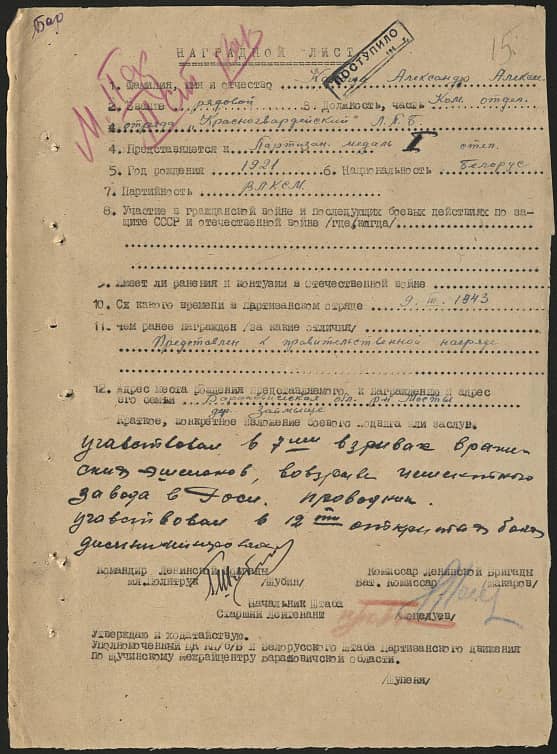 Бар
15.
НАГРАДНОЙ ЛИСТ
ПОСТУПИЛО
1. Фамилия, имя и отчество Александр
2. Звание рядовой 3. Должность, часть Ком. отдел.
отряда "Красногвардейский" Л.П.Б.
4. Представляется к Партизан. медаль I степ.
5. Год рождения 1921 6. Национальность белорус
7. Партийность ВЛКСМ.
8. Участие в гражданской войне и последующих боевых действиях по за-
щите СССР и отечественной войне /где, когда/
9. Имеет ли ранения и контузии в Отечественной войне
10. С какого времени в Партизанском отряде 9. III. 1943
11. Чем ранее награжден /за какие отличия/
Представлен к правительственной награде
12. Адрес места рождения представляемого, к награждению и адрес
его семьи Барановичская обл. р-н Мосты
др. Займыще
Краткое, конкретное изложение боевого подвига или заслуг.
участвовал в 7ми взривах враже-
ских эшелонов, во взриве
завода в Роси. Проводник.
участвовал в 12ти открытых боях
Командир Ленинской Бригады Комиссар Ленинской Бригады
мл.Политрук /Шубин/ Бат. Комиссар /Макаров/
Начальник Штаба
Старший Лейтенант
Утверждаю и ходатайствую.
Уполномоченный ЦК КП/б/Б и Белорусского штаба Партизанского движения
по Щучинскому межрайцентру Барановичской области.
/Шупеня/